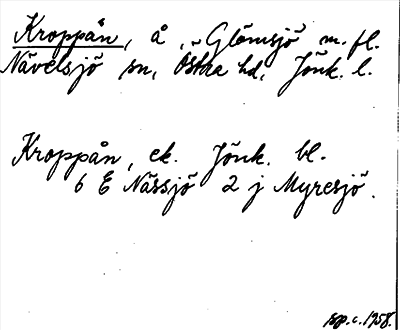 Kroppån, å, Glömsjö m. fl.
Nävelsjö sn, Östra hd, Jönk. l.
Kroppån, ek. Jönk. bl.
6 E Nässjö 2 j Myresjö.
sp.c. 1958.